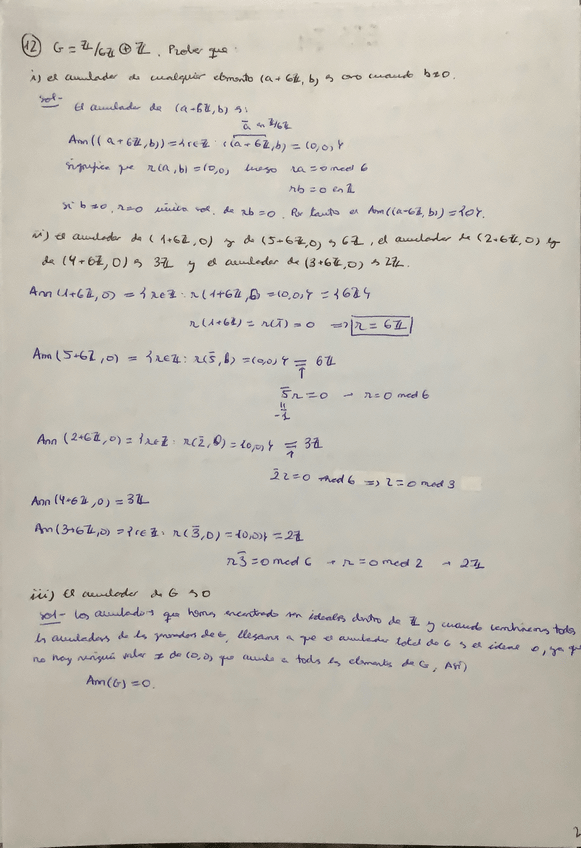 12) G = ℤ/6ℤ ⊕ ℤ. Probar que:
i) el anulador de cualquier elemento (a + 6ℤ, b) es cero cuando b≠0.
sol- El anulador de (a+6ℤ, b) es:
ā en ℤ/6ℤ
Ann((a+6ℤ, b)) = {r∈ℤ : r(a+6ℤ, b) = (0,0)}
significa que r(a, b) = (0,0) luego ra = 0 mod 6
rb = 0 en ℤ
si b≠0, r=0 única sol. de rb=0. Por tanto es Ann((a+6ℤ, b)) = {0}.
ii) el anulador de (1+6ℤ, 0) y de (5+6ℤ, 0) es 6ℤ, el anulador de (2+6ℤ, 0) y
de (4+6ℤ, 0) es 3ℤ y el anulador de (3+6ℤ, 0) es 2ℤ.
Ann(1+6ℤ, 0) = {r∈ℤ : r(1+6ℤ, 0) = (0,0)} = {6ℤ}
r(1+6ℤ) = r(1̄) = 0 ⇒ r = 6ℤ
Ann(5+6ℤ, 0) = {r∈ℤ : r(5̄, 0) = (0,0)} = 6ℤ
↑
5̄r = 0 → r = 0 mod 6
॥
-1
Ann(2+6ℤ, 0) = {r∈ℤ : r(2̄, 0) = (0,0)} = 3ℤ
↑
2̄r = 0 mod 6 ⇒ r = 0 mod 3
Ann(4+6ℤ, 0) = 3ℤ
Ann(3+6ℤ, 0) = {r∈ℤ : r(3̄, 0) = (0,0)} = 2ℤ
r3̄ = 0 mod 6 → r = 0 mod 2 → 2ℤ
iii) El anulador de G es 0
sol- Los anuladores que hemos encontrado son ideales dentro de ℤ y cuando combinemos todos
los anuladores de los generados de G, llegamos a que el anulador total de G es el ideal 0, ya que
no hay ningún valor ≠ de (0,0) que anule a todos los elementos de G, Así)
Ann(G) = 0.
2